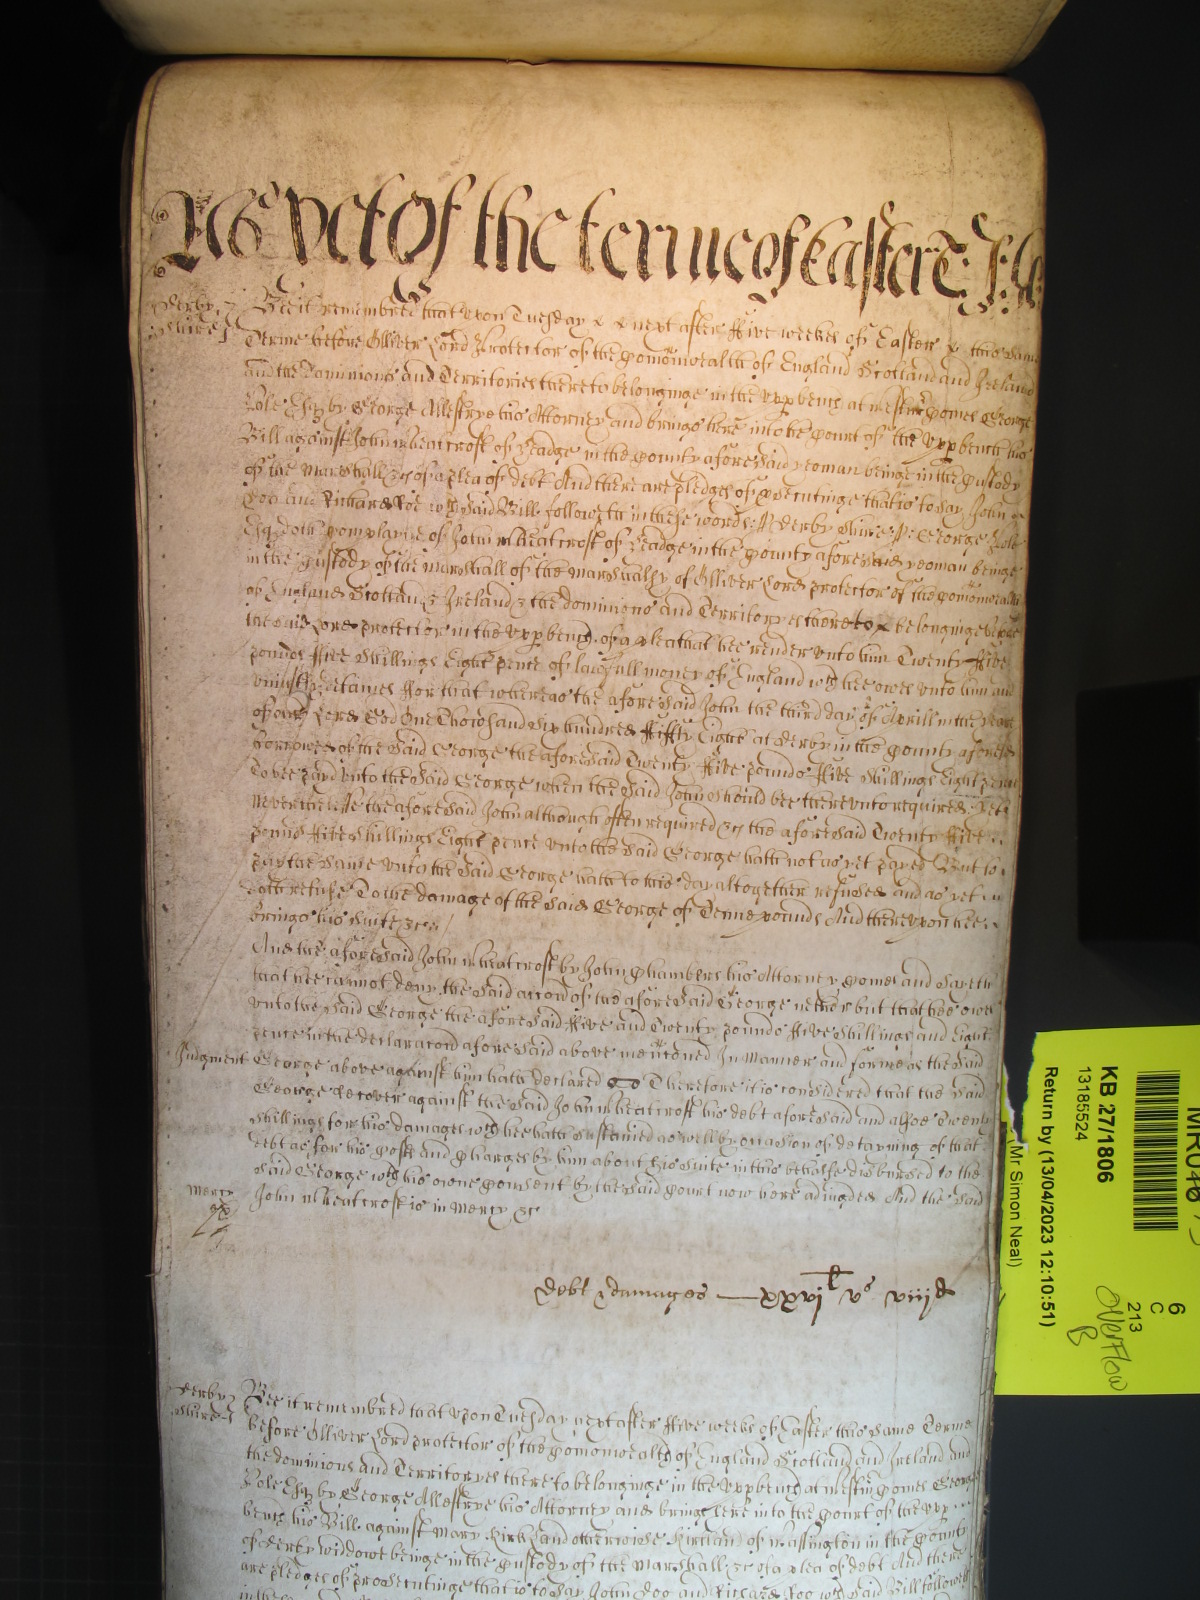 As yet of the terme of Easter
Derby
shire
Bee it remembred that vpon Tuesday & & next after ffive weekes of Easter & this same
Terme before Olliver Lord Protector of the Comonwealth of England Scotland and Ireland
and the Dominions and Territories thereto belonginge in the vpp bench at westmr Comes George
Pole Esqr by George Allestrye his Attorney and brings here into the Court of the vpp bench his
Bill against John wheatcroft of in the County aforesaid yeoman beinge in the Custody
of the Marshall &c of a plea of debt And there are pledges of prosecutinge that is to say John
Doo and Richard Roe wch said Bill followeth in these words: Derby Shire: George Pole
Esqr doth Complayne of John wheatcroft of in the County aforesaid yeoman beinge
in the Custody of the marshall of the marshalsy of Olliver Lord protector of the Comonwealth
of England Scotland & Ireland & the dominions and Territoryes thereto belonginge before
the said Lord protector in the vpp bench of a plea that hee render vnto him Twenty ffive
pounds ffive shillings Eight pence of lawfull money of England wch hee owes vnto him and
vniustly detaines ffor that whereas the aforesaid John the third day of Aprill in the yeare
of our Lord God One Thowsand six hundred ffiffty Eight at derby in the County aforesd
borrowed of the said George the aforesaid Twenty ffive pounds ffive shillings Eight pence
To bee payd vnto the said George when the said John should bee therevnto required Yett
neverthelesse the aforesaid John although often required &c the aforesaid Twenty ffive
pounds ffive shillings Eight pence vnto the said George hath not as yet payed But to
pay the same vnto the said George hath to this day altogether refused and as yet
doth refuse To the damage of the said George of Tenne pounds And therevpon hee
brings his suite &c
And the aforesaid John wheatcroft by John Chambers his Attorney Comes and sayeth
that hee cannot deny the said accon of the aforesaid George nether but that hee owes
vnto the said George the aforesaid ffive and Twenty pounds ffive shillings and Eight
pence in the declaracon aforesaid above mencioned In manner and forme as the said
Judgment George above against him hath declared Therefore it is considered that the said
George Recover against the said John wheatcroft his debt aforesaid and alsoe Twenty
shillings for his damages wch hee hath sustained as well by occasion of detayning of that
debt as for his Costs and Charges by him about his suite in this behalfe disbursed to the
said George wth his owne Consent by the said Court now here adiudged And the said
mercy John wheatcroft is in mercy &c
Debt & damages — xxvjl vs viijd
Derby
shire
Bee it remembred that vpon Tuesday next after ffive weekes of Easter this same Terme
before Olliver Lord protector of the Comonwealth of England Scotland and Ireland and
the dominions and Territoryes there to belonginge in the vpp bench at westmr Comes George
Pole Esqr by George Allestrye his Attorney and brings here into the Court of the vpp
bench his Bill against Mary Kirkland otherwise Kirland of in the County
of derby widdowe beinge in the Custody of the Marshall &c of a plea of debt And there
are pledges of prosecutinge that is to say John Doo and Richard Roo wch said Bill followeth
in these
KB 27/1806
13185524
Return by (13/04/2023 12:10:51)
(Mr Simon Neal)
6
C
213
Overflow
B